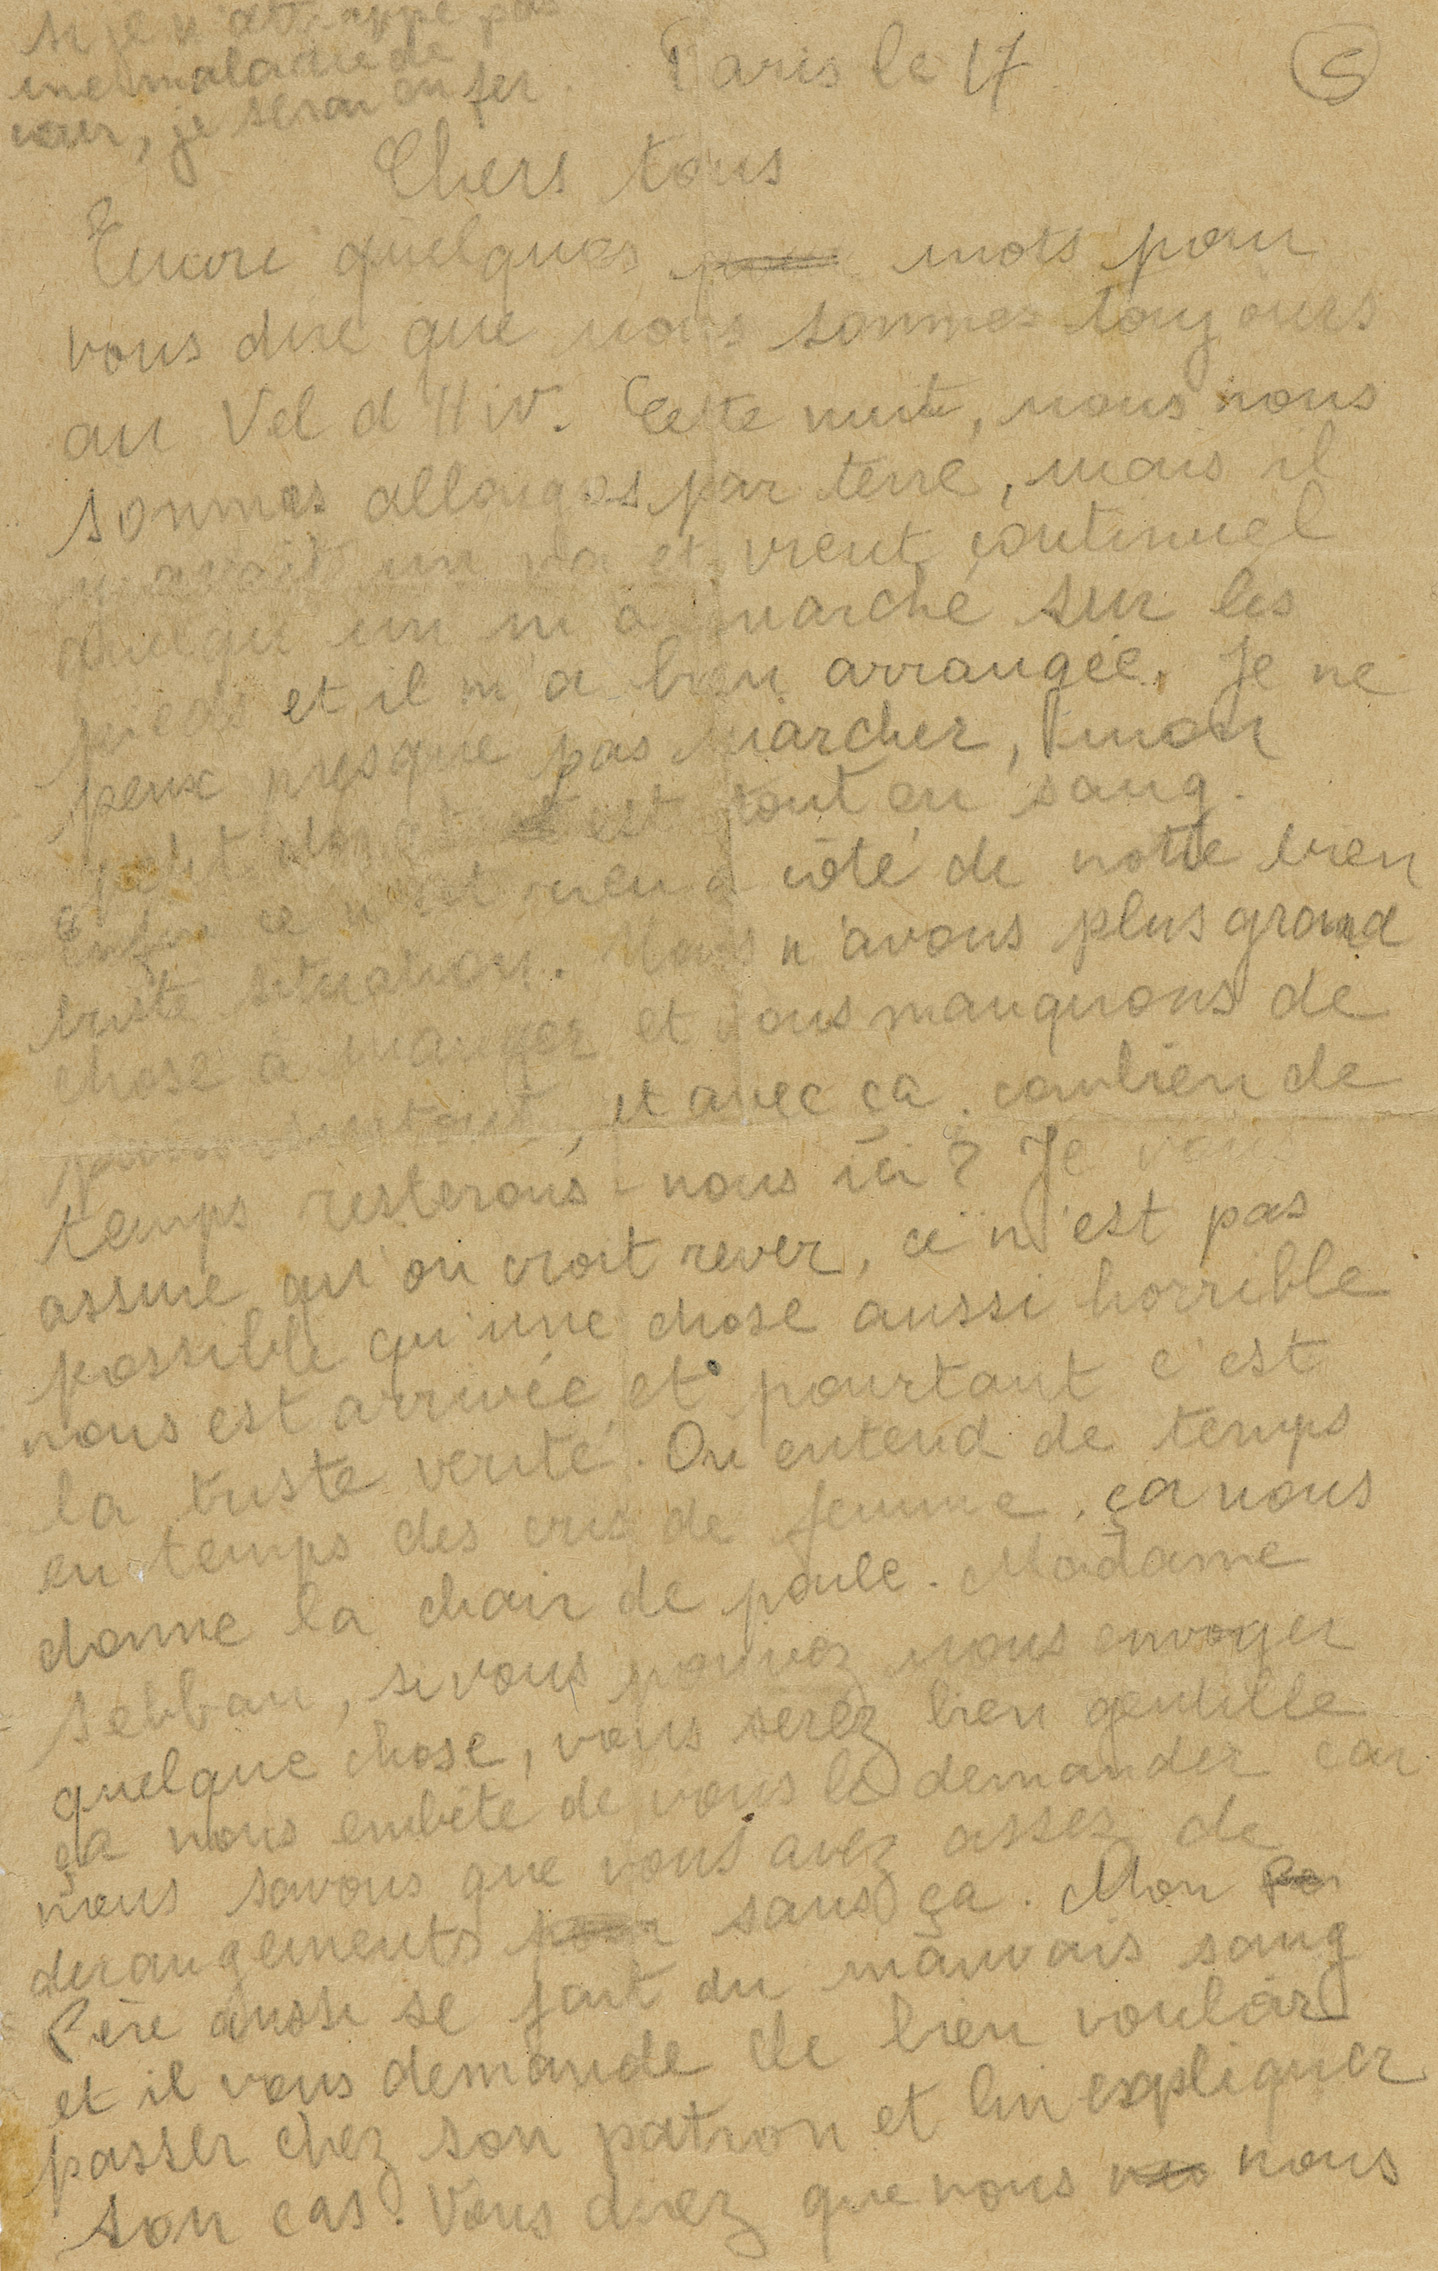 si je n'attrappe pas
une maladie de
cœur, je serai en fer.
Paris le 17
5
Chers tous
Encore quelques mots pour
vous dire que nous sommes toujours
au Vel d'Hiv. Cette nuit, nous nous
sommes allongés par terre, mais il
y avait un va et vient continuel
quelqu'un m'a marché sur les
pieds et il m'a bien arrangée. Je ne
peux presque pas marcher, mon
petit doigt est tout en sang.
Enfin ce n'est rien à côté de notre bien
triste situation. Nous n'avons plus grand
chose à manger et nous manquons de
pain surtout, et avec ça. combien de
temps resterons-nous ici? Je vous
assure qu'on croit rever, ce n'est pas
possible qu'une chose aussi horrible
nous est arrivée et pourtant c'est
la triste verité. On entend de temps
en temps des cris de femme, ça nous
donne la chair de poule. Madame
Sebban, si vous pouvez nous envoyer
quelque chose, vous serez bien gentille
ça nous embête de vous le demander car
nous savons que vous avez assez de
derangements pour sans ça. Mon
Père aussi se fait du mauvais sang
et il vous demande de bien vouloir
passer chez son patron et lui expliquer
son cas. Vous direz que nous nous